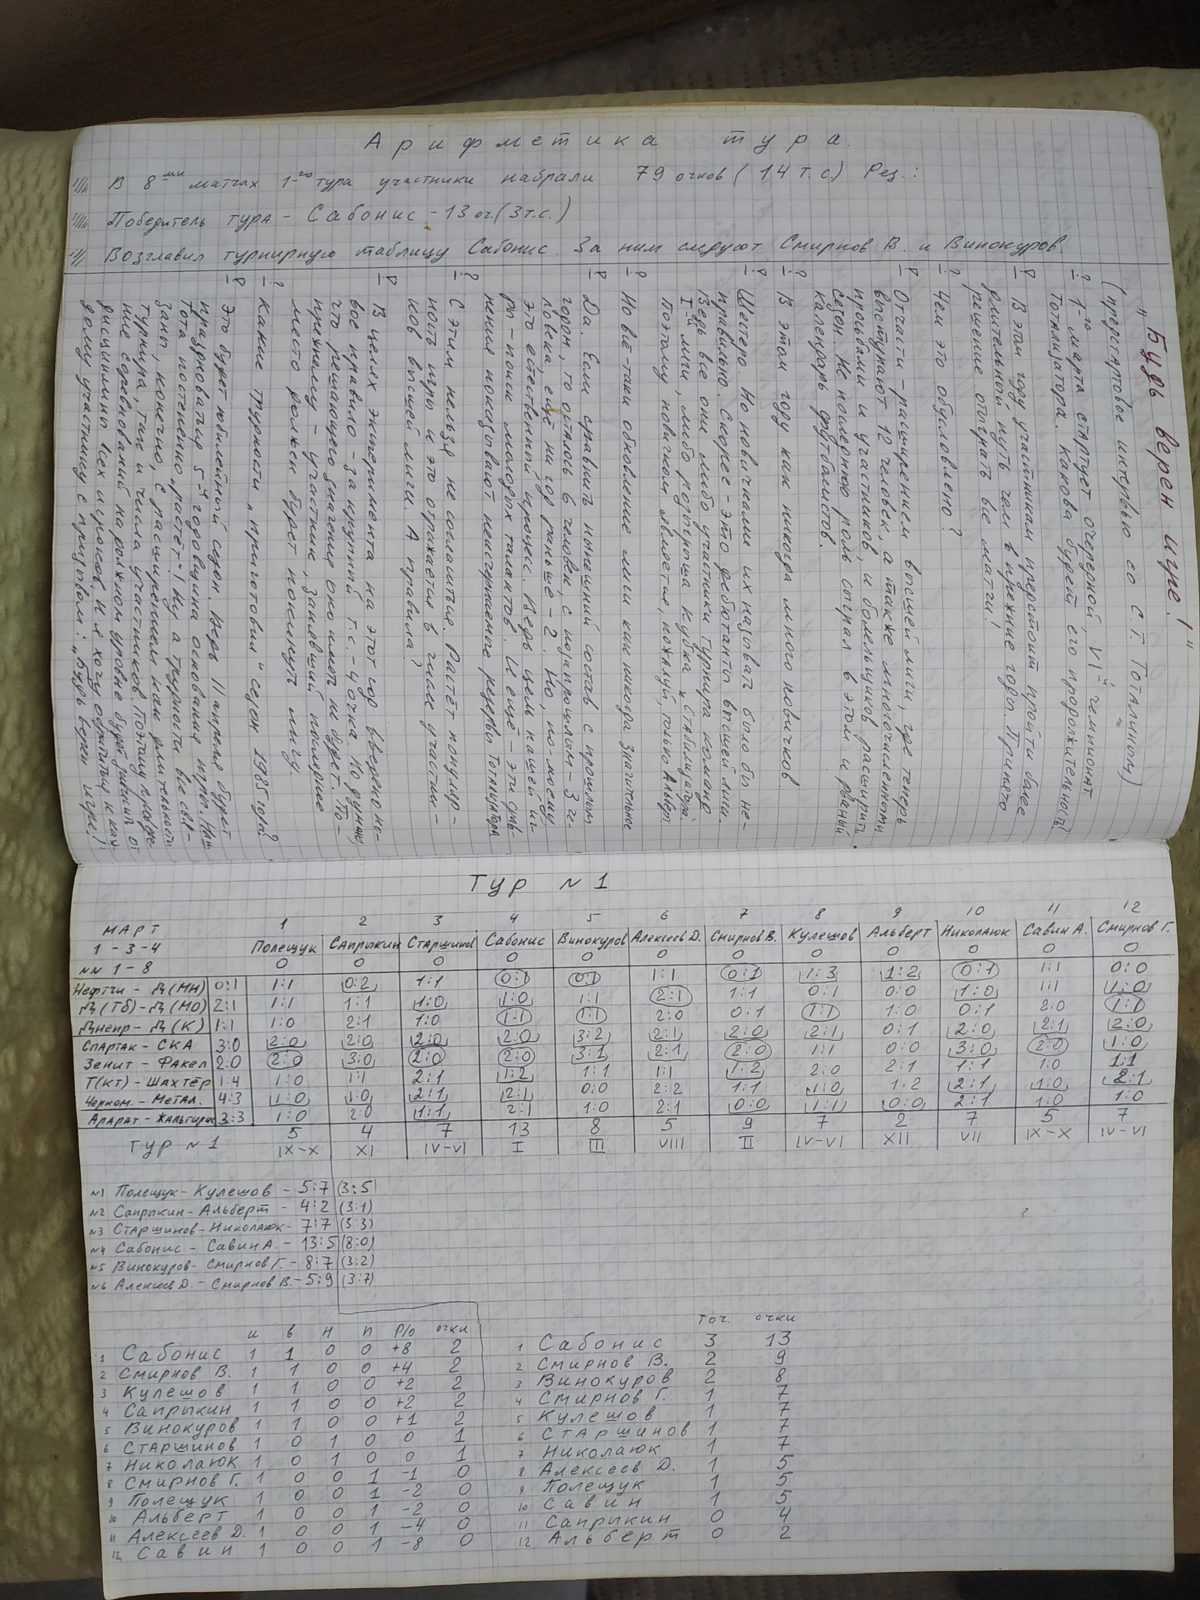 Арифметика тура.
В 8ми матчах 1-го тура участники набрали 79 очков (14 т.с) Рез.:
Победитель тура - Сабонис - 13 оч. (3 т.с.)
Возглавил турнирную таблицу Сабонис. За ним следуют Смирнов В. и Винокуров.
"Будь верен игре!"
(предстартовое интервью со С.Т. Тоталиным)
- ? 1-го марта стартует очередной, VI-й чемпионат
Тотализатора. Какова будет его продолжительность?
- ! В этом году участникам предстоит пройти более
длительный путь чем в прежние годы. Принято
решение отыграть все матчи!
- ? Чем это обусловлено?
- ! Отчасти - расширением высшей лиги, где теперь
выступают 12 человек, а также многочисленными
просьбами и участников, и болельщиков расширить
сезон. Не последнюю роль сыграл в этом и рваный
календарь футболистов.
- ? В этом году как никогда много новичков.
- ! Шестеро. Но новичками их назвать было бы не-
правильно. Скорее - это дебютанты высшей лиги.
Ведь все они либо участники турнира команд
I-й лиги, либо розыгрыша Кубка „Сталищатора".
Поэтому новичком является, пожалуй, только Альберт.
- ? Но всё-таки обновление лиги как никогда значительное
- ! Да. Если сравнить нынешний состав с прошлым
годом, то осталось 6 человек, с позапрошлым - 3 че-
ловека, ещё на год раньше - 2. Но, по-моему,
это естественный процесс. Ведь цель нашей иг-
ры - поиск молодых талантов. И ещё - эти срав-
нения показывают неисчерпаемые резервы Тотализатора
- ? С этим нельзя не согласиться. Растёт популяр-
ность игры и это отражается в числе участни-
ков высшей лиги. А правила?
- ! В целях эксперимента на этот год введено но-
вое правило - за крупный т.с. - 4 очка. Но думаю,
что решающего значения оно иметь не будет. По-
прежнему - участник, занявший последнее
место должен будет покинуть лигу.
- ? Какие трудности „приготовил" сезон 1985 года?
- ! Это будет юбилейный сезон. Ведь 11 апреля будет
праздноваться 5-я годовщина основания игры. На
Тота постепенно растёт. Ну а трудности все свя-
заны, конечно, с расширением как длительности
турнира, так и числа участников. Поэтому проведе-
ние соревнований на должном уровне будет зависеть от
дисциплины всех игроков. И я хочу обратиться к каж-
дому участнику с призывом: „Будь верен игре!"
Тур №1
МАРТ 1 2 3 4 5 6 7 8 9 10 11 12
1-3-4 Полещук Сапрыкин Старшинов Сабонис Винокуров Алексеев Д. Смирнов В. Кулешов Альберт Николаюк Савин А. Смирнов Г.
№№ 1-8 0 0 0 0 0 0 0 0 0 0 0 0
Нефтчи - Д(Мн) 0:1 1:1 0:2 1:1 0:1 0:1 1:1 0:1 1:3 1:2 0:1 1:1 0:0
Д(Тб) - Д(Мо) 2:1 1:1 1:1 1:0 1:0 1:1 2:1 1:1 0:1 0:0 1:0 1:1 1:0
Днепр - Д(К) 1:1 1:0 2:1 1:0 1:1 1:1 2:0 0:1 1:1 1:0 0:1 2:0 1:1
Спартак - СКА 3:0 2:0 2:0 2:0 2:0 3:2 2:1 2:0 2:1 0:1 2:0 2:1 2:0
Зенит - Факел 2:0 2:0 3:0 2:0 2:0 3:1 2:1 2:0 1:1 0:0 3:0 2:0 1:0
Т(Кт) - Шахтёр 1:4 1:0 1:1 2:1 1:2 1:1 1:1 1:2 2:0 2:1 1:1 1:0 1:1
Черном. - Метал. 4:3 1:0 1:0 2:1 2:1 0:0 2:2 1:1 1:0 1:2 2:1 1:0 2:1
Арарат - Жальгирис 3:3 1:0 2:0 1:1 2:1 1:0 2:1 0:0 1:1 0:0 2:1 1:0 1:0
Тур №1 5 4 7 13 8 5 9 7 2 7 5 7
IX-X XI IV-VI I III VIII II IV-VI XII VII IX-X IV-VI
№1 Полещук - Кулешов - 5:7 (3:5)
№2 Сапрыкин - Альберт - 4:2 (3:1)
№3 Старшинов - Николаюк - 7:7 (3:3)
№4 Сабонис - Савин А. - 13:5 (8:0)
№5 Винокуров - Смирнов Г. - 8:7 (3:2)
№6 Алексеев Д. - Смирнов В. - 5:9 (3:7)
и в н п р/о очки
1 Сабонис 1 1 0 0 +8 2
2 Смирнов В. 1 1 0 0 +4 2
3 Кулешов 1 1 0 0 +2 2
4 Сапрыкин 1 1 0 0 +2 2
5 Винокуров 1 1 0 0 +1 2
6 Старшинов 1 0 1 0 0 1
7 Николаюк 1 0 1 0 0 1
8 Смирнов Г. 1 0 0 1 -1 0
9 Полещук 1 0 0 1 -2 0
10 Альберт 1 0 0 1 -2 0
11 Алексеев Д. 1 0 0 1 -4 0
12 Савин 1 0 0 1 -8 0
точ. очки
1 Сабонис 3 13
2 Смирнов В. 2 9
3 Винокуров 2 8
4 Смирнов Г. 1 7
5 Кулешов 1 7
6 Старшинов 1 7
7 Николаюк 1 7
8 Алексеев Д. 1 5
9 Полещук 1 5
10 Савин 1 5
11 Сапрыкин 0 4
12 Альберт 0 2